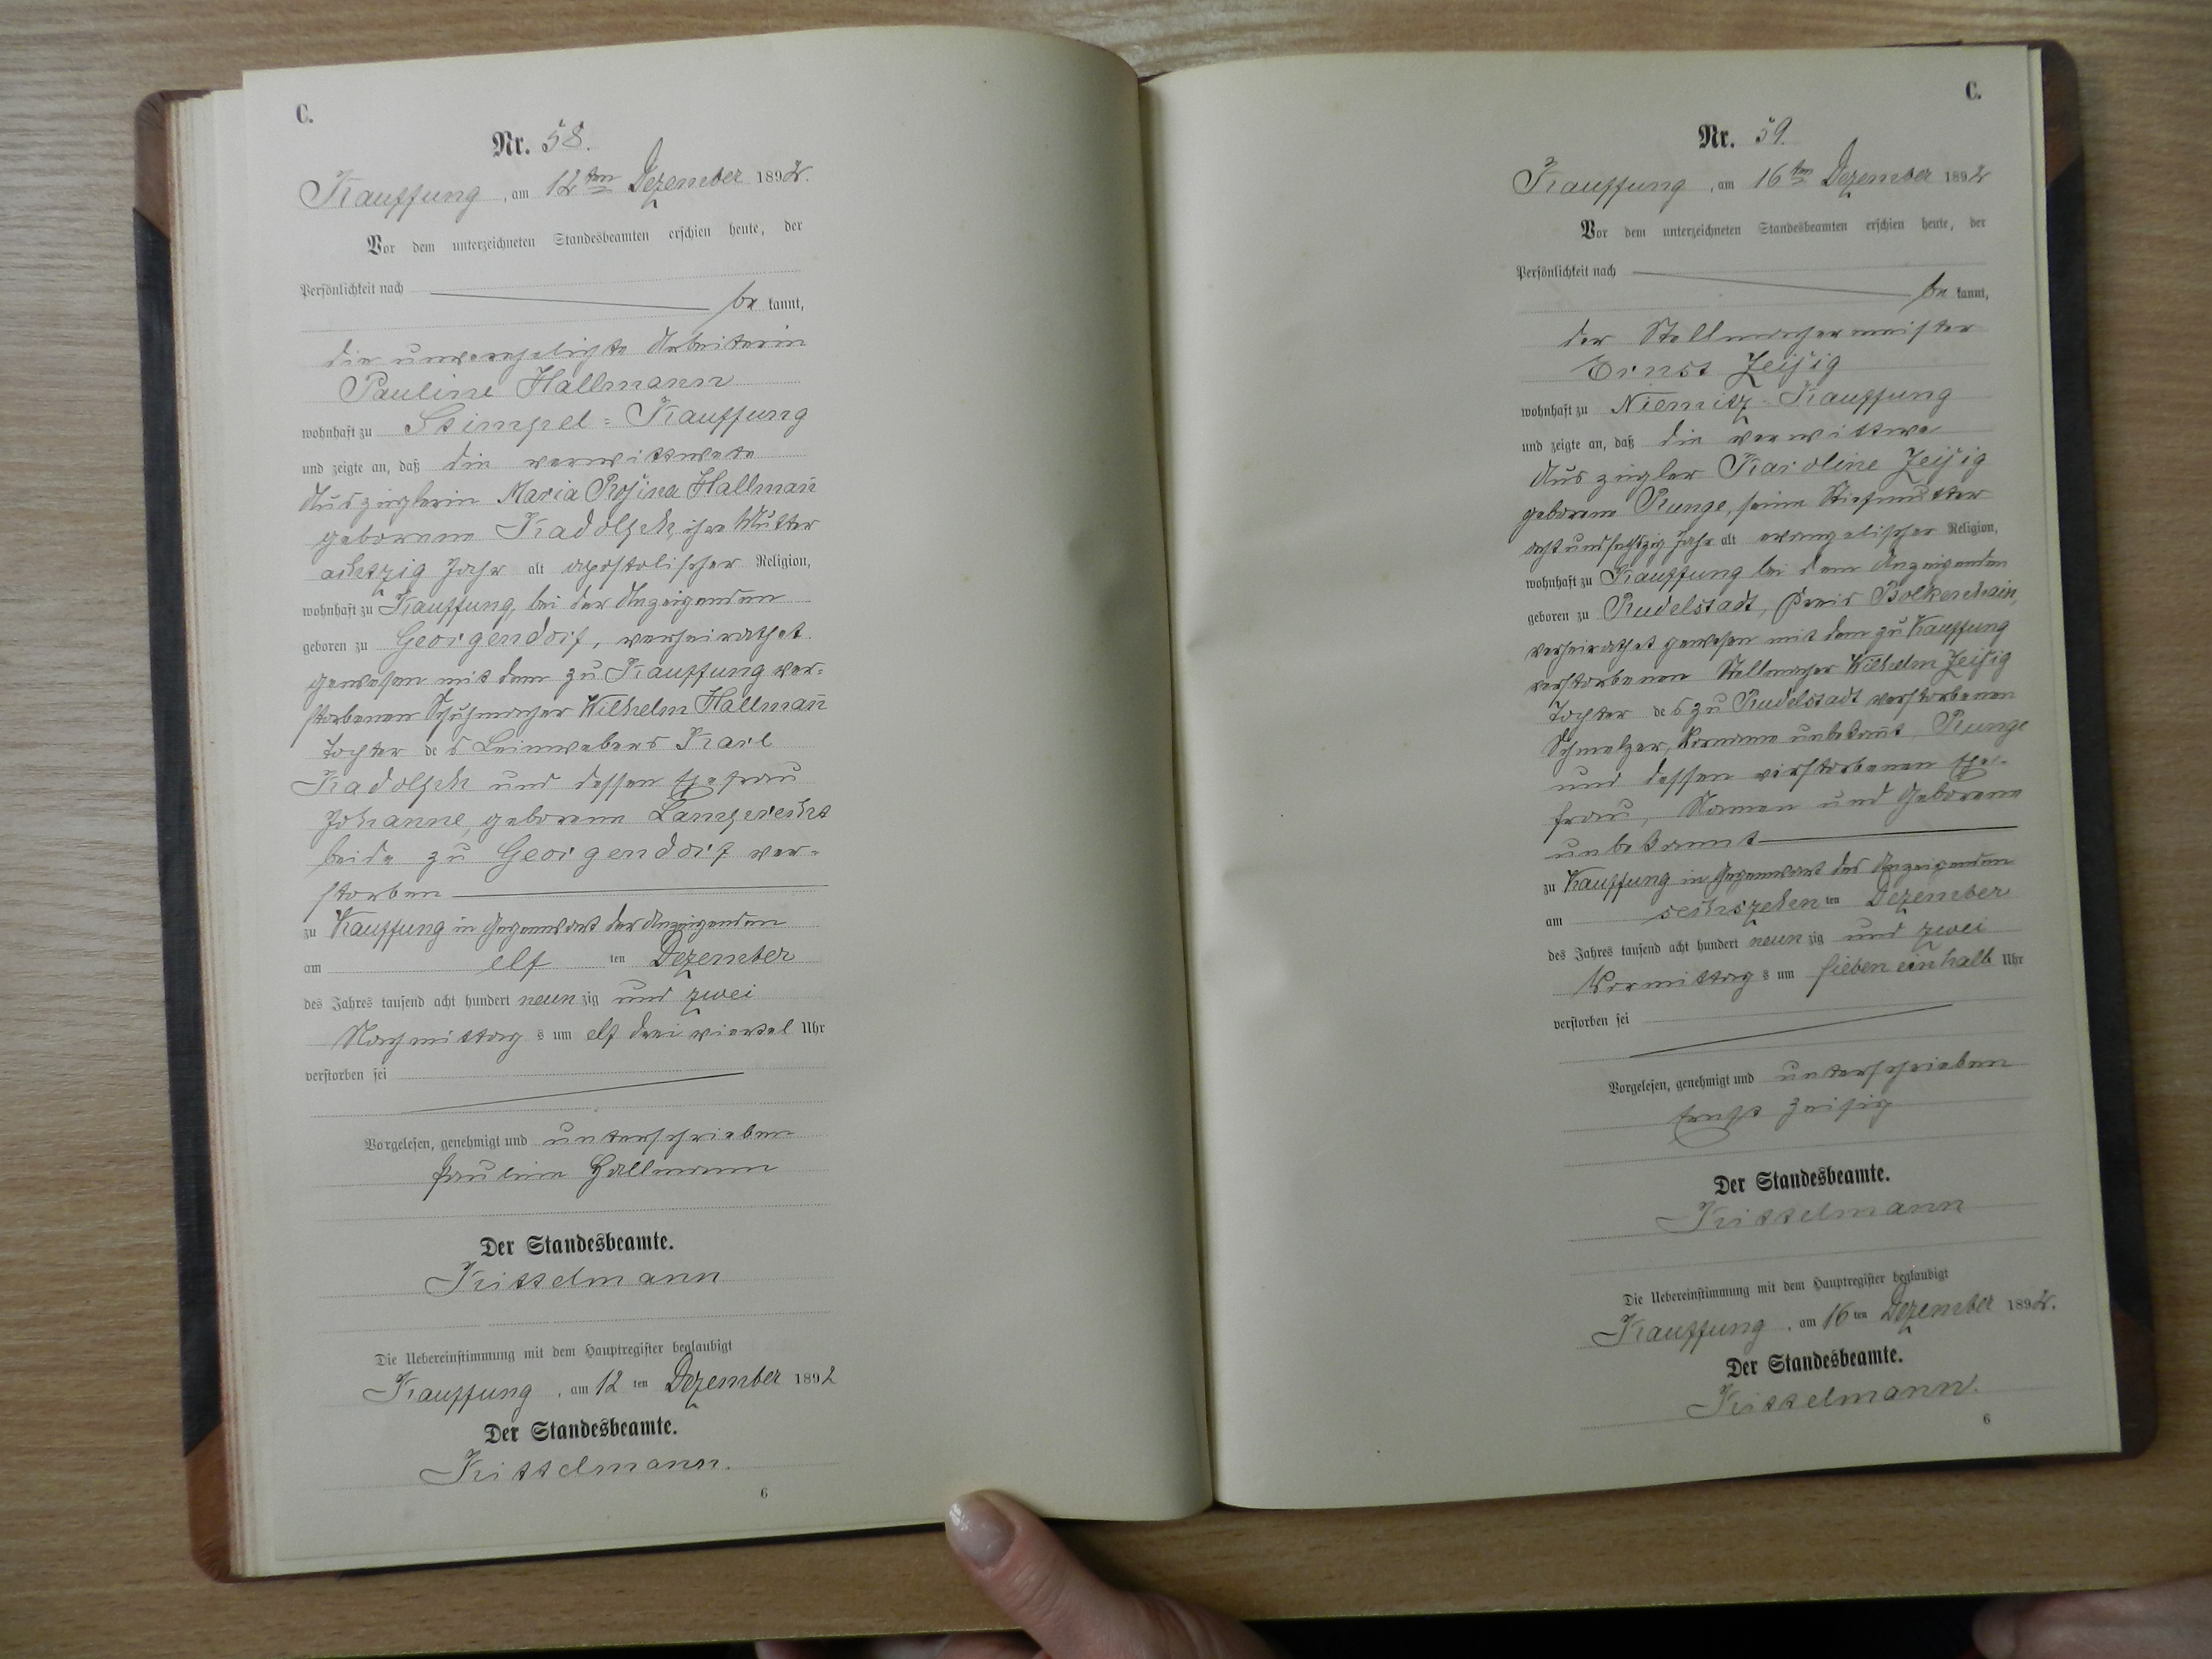 C.
Nr. 58.
Kauffung, am 12ten Dezember 1892.
Vor dem unterzeichneten Standesbeamten erschien heute, der
Persönlichkeit nach
be kannt,
die unverehelichte Arbeiterin
Pauline Hallmann
wohnhaft zu Stimpel-Kauffung
und zeigte an, daß die verwittwete
Auszüglerin Maria Rosina Hallmañ
geborene Kadolsch, ihre Mutter
achtzig Jahr alt apostolischer Religion,
wohnhaft zu Kauffung, bei der Anzeigenden
geboren zu Georgendorf, verheirathet
gewesen mit dem zu Kauffung ver-
storbenen Schuhmacher Wilhelm Hallmañ
Tochter des Leinwebers Karl
Kadolsch und dessen Ehefrau
Johanne, geborene Langer
beide zu Georgendorf ver-
storben
zu Kauffung in Gegenwart der Anzeigenden
am elf ten Dezember
des Jahres tausend acht hundert neunzig und zwei
Nachmittags um elf drei viertel Uhr
verstorben sei
Vorgelesen, genehmigt und unterschrieben
Pauline Hallmann
Der Standesbeamte.
Kittelmann
Die Uebereinstimmung mit dem Hauptregister beglaubigt
Kauffung, am 12 ten Dezember 1892
Der Standesbeamte.
Kittelmann.
6
C.
Nr. 59.
Kauffung, am 16ten Dezember 1892
Vor dem unterzeichneten Standesbeamten erschien heute, der
Persönlichkeit nach
be kannt,
der Stellmachermeister
Ernst Zeisig
wohnhaft zu Niemitz-Kauffung
und zeigte an, daß die verwittwe
Auszügler Karoline Zeisig
geborene Runge, seine Stiefmutter
achtundsechszig Jahr alt evangelischer Religion,
wohnhaft zu Kauffung bei dem Anzeigenden
geboren zu Rudelstadt, Kreis Bolkenhain,
verheirathet gewesen mit dem zu Kauffung
verstorbenen Stellmacher Wilhelm Zeisig
Tochter des zu Rudelstadt verstorbenen
Schmelzer, Vorname unbekañt, Runge
und dessen verstorbenen Ehe-
frau, Namen und Geborene
unbekannt
zu Kauffung in Gegenwart des Anzeigenden
am sechszehen ten Dezember
des Jahres tausend acht hundert neunzig und zwei
Vormittags um sieben einhalb Uhr
verstorben sei
Vorgelesen, genehmigt und unterschrieben
Ernst Zeisig
Der Standesbeamte.
Kittelmann
Die Uebereinstimmung mit dem Hauptregister beglaubigt
Kauffung, am 16 ten Dezember 1892.
Der Standesbeamte.
Kittelmann.
6